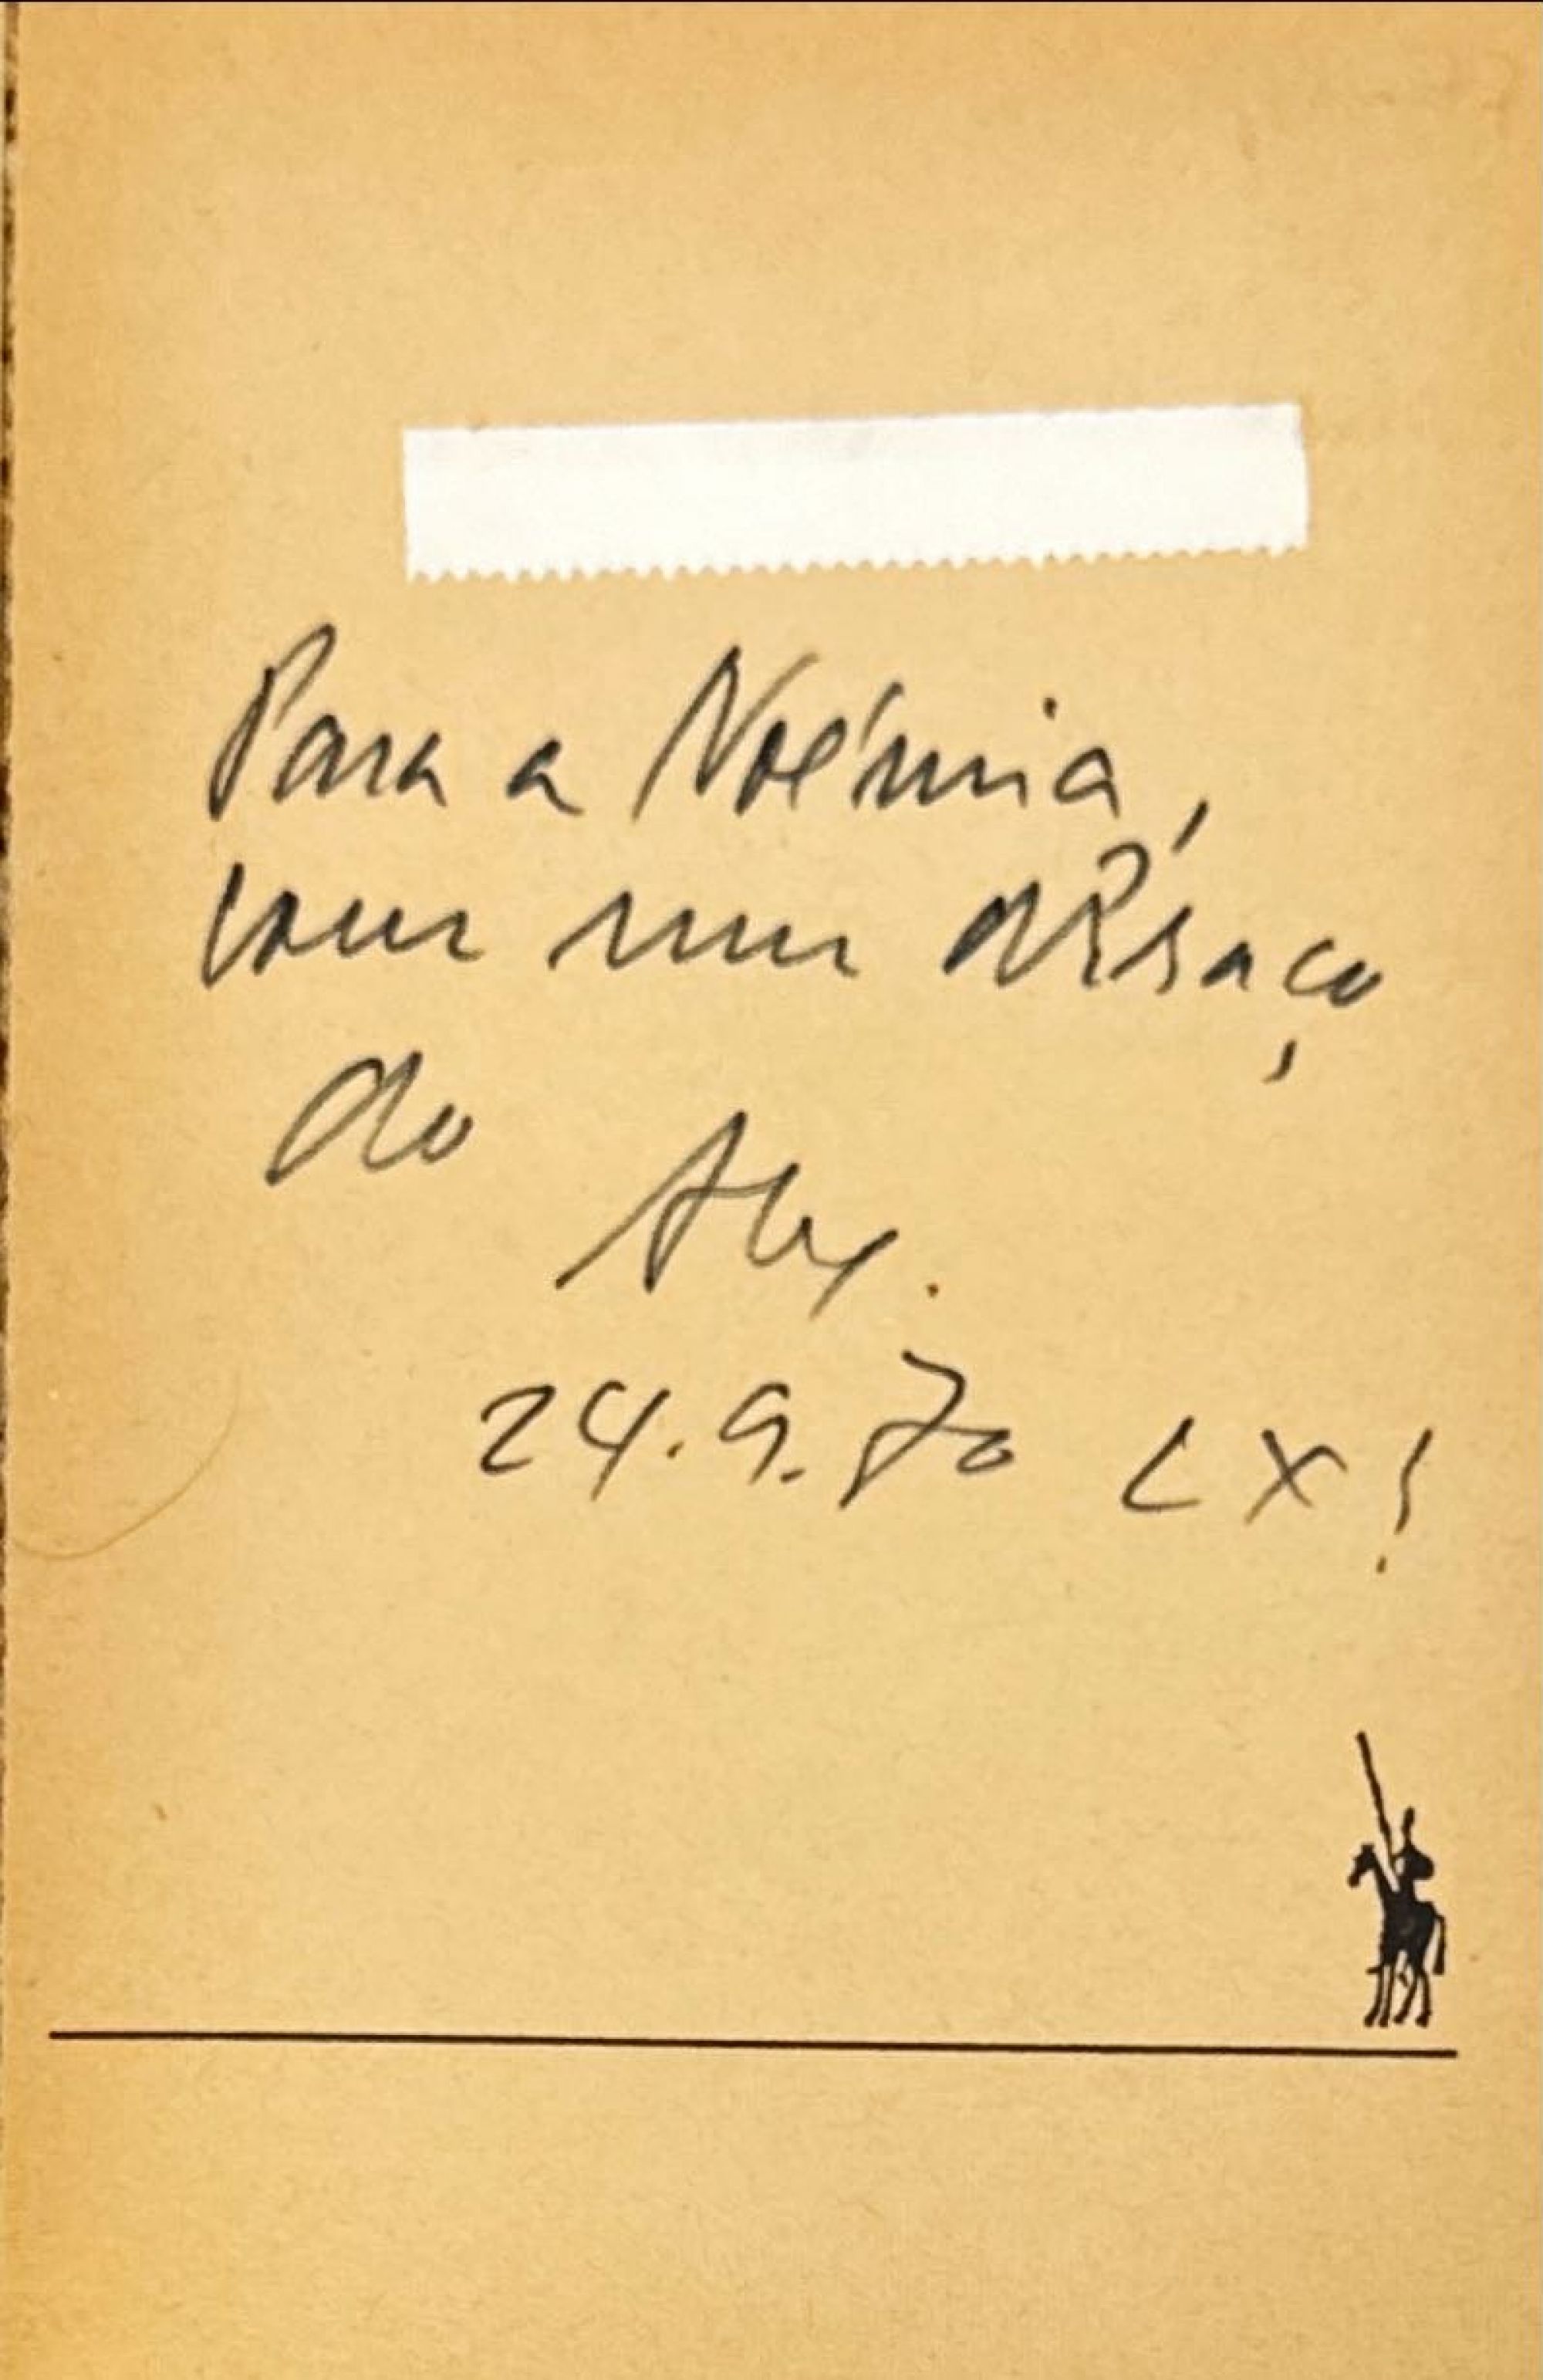 Para a Noémia,
com um abraço
do Alex.
24.9.70 LX!